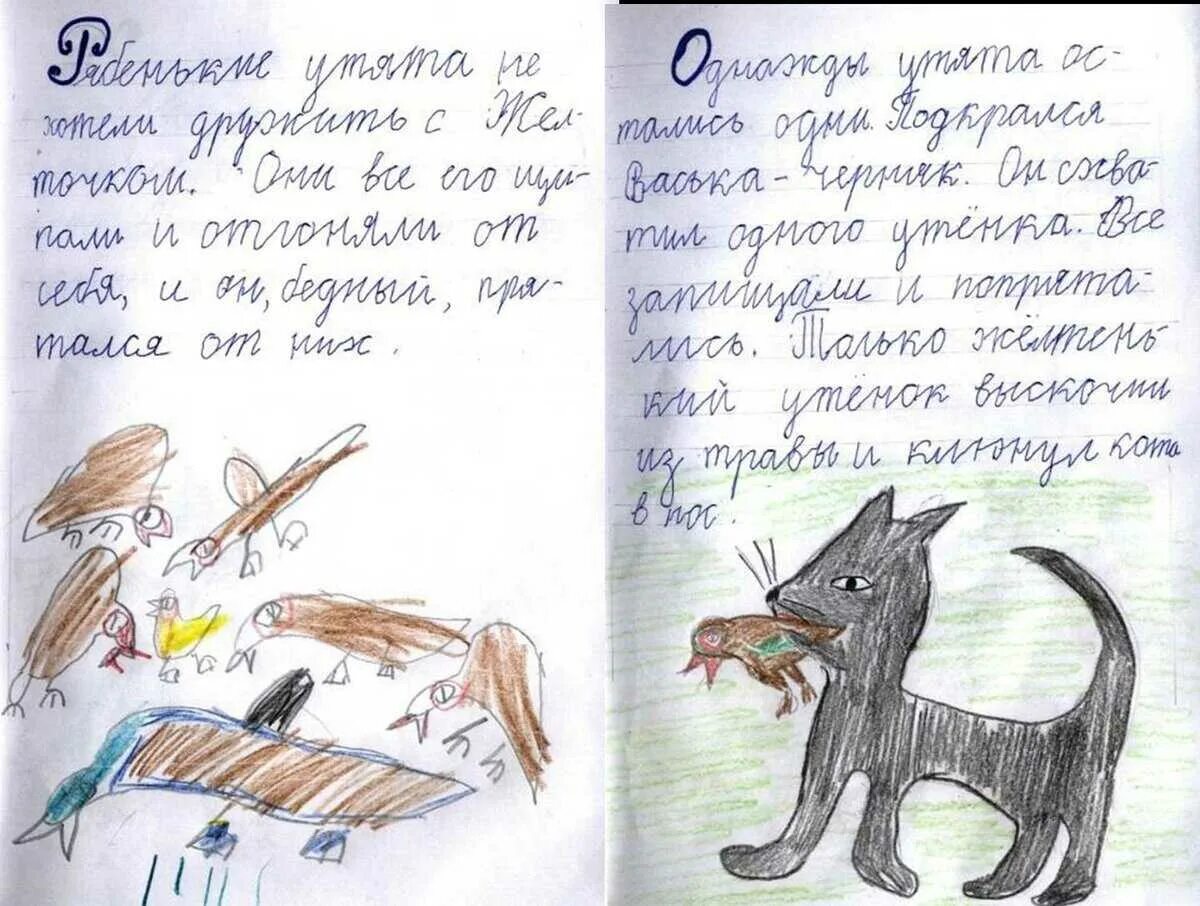 Рябенькие утята не
хотели дружить с Жел-
точком. Они все его щи-
пали и отгоняли от
себя, и он, бедный, пря-
тался от них.
Однажды утята ос-
тались одни. Подкрался
Васька - черняк. Он схва-
тил одного утёнка. Все
запищали и попрята-
лись. Только жёлтень-
кий утёнок выскочил
из травы и клюнул кота
в нос.